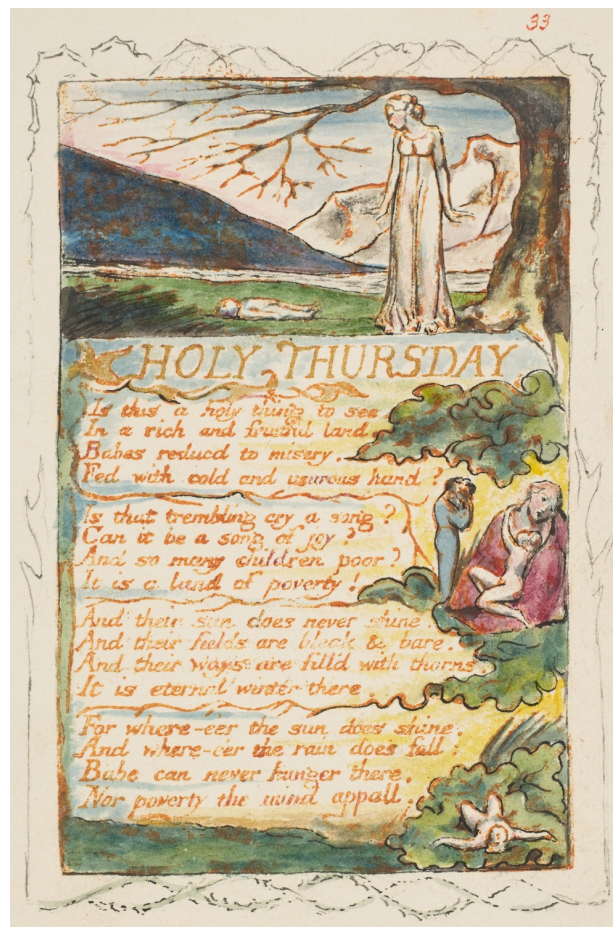 33
HOLY THURSDAY
Is this a holy thing to see
In a rich and fruitful land.
Babes reducd to misery.
Fed with cold and usurous hand?
Is that trembling cry a song?
Can it be a song of joy?
And so many children poor?
It is a land of poverty!
And their sun does never shine
And their fields are bleak & bare.
And their ways are filld with thorns
It is eternal winter there.
For where-e'er the sun does shine.
And where-e'er the rain does fall:
Babe can never hunger there,
Nor poverty the mind appall.